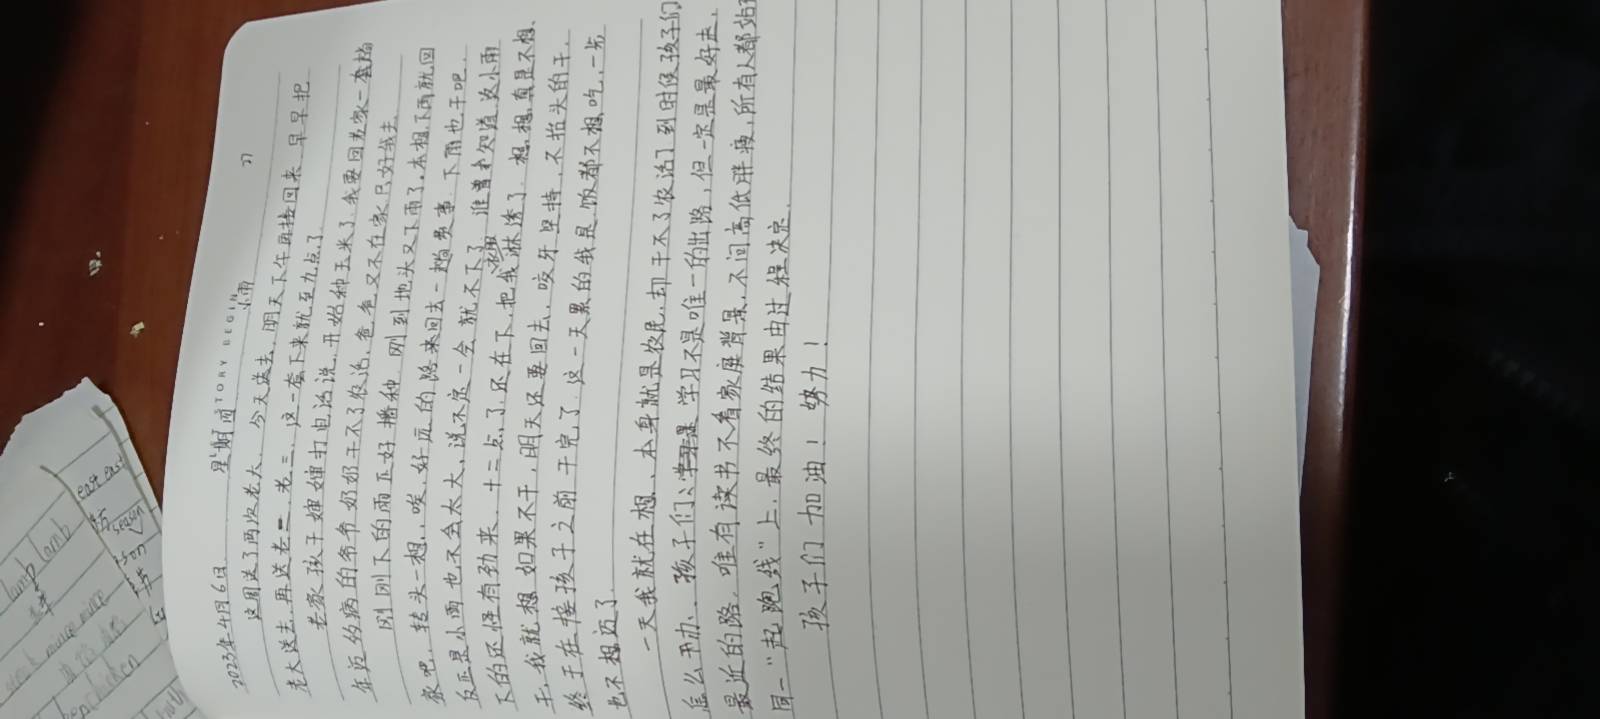 STORY BEGIN
27
2023年4月6日 星期四 小雨
这周送了两次老大，今天送去，明天下午再接回来，早早把
老大送去，再送老二，老三，这一套下来就至九点了
老家孩子婶婶打电话说，开始种玉米了，我要回老家一套趟
年迈的病的爷爷奶奶干不了农活，爸爸又不在家只好我去
刚刚下的雨正好播种，刚到地头又下雨了，本想下雨就回
家吧，转头一想，唉，好远的路来回去一趟费事，下雨也干吧，
反正是小雨也不会太大，说不定一会就不下了，谁曾知道这小雨
下的还怪有劲来，十二点了还在下，把我淋透了，想想真是不想
干，我就想如果不干，明天还要回去，咬牙坚持，不抬头的干，
终于在接孩子之前干完了，这一天累的我是饭都不想吃，一步
也不想迈了
一天我就在想，本身就是农民，却干不了农活了到时候孩子们
怎么开办、孩子们，学习不是唯一的出路，但一定是最好走，
最近的路，唯有读书不看家庭背景，不问高低胖瘦，所有人都站在
同一"起跑线"上，最终的结果由过程决定
孩子们加油！努力！
lamb lamb
east east
season
mince mince
chicken